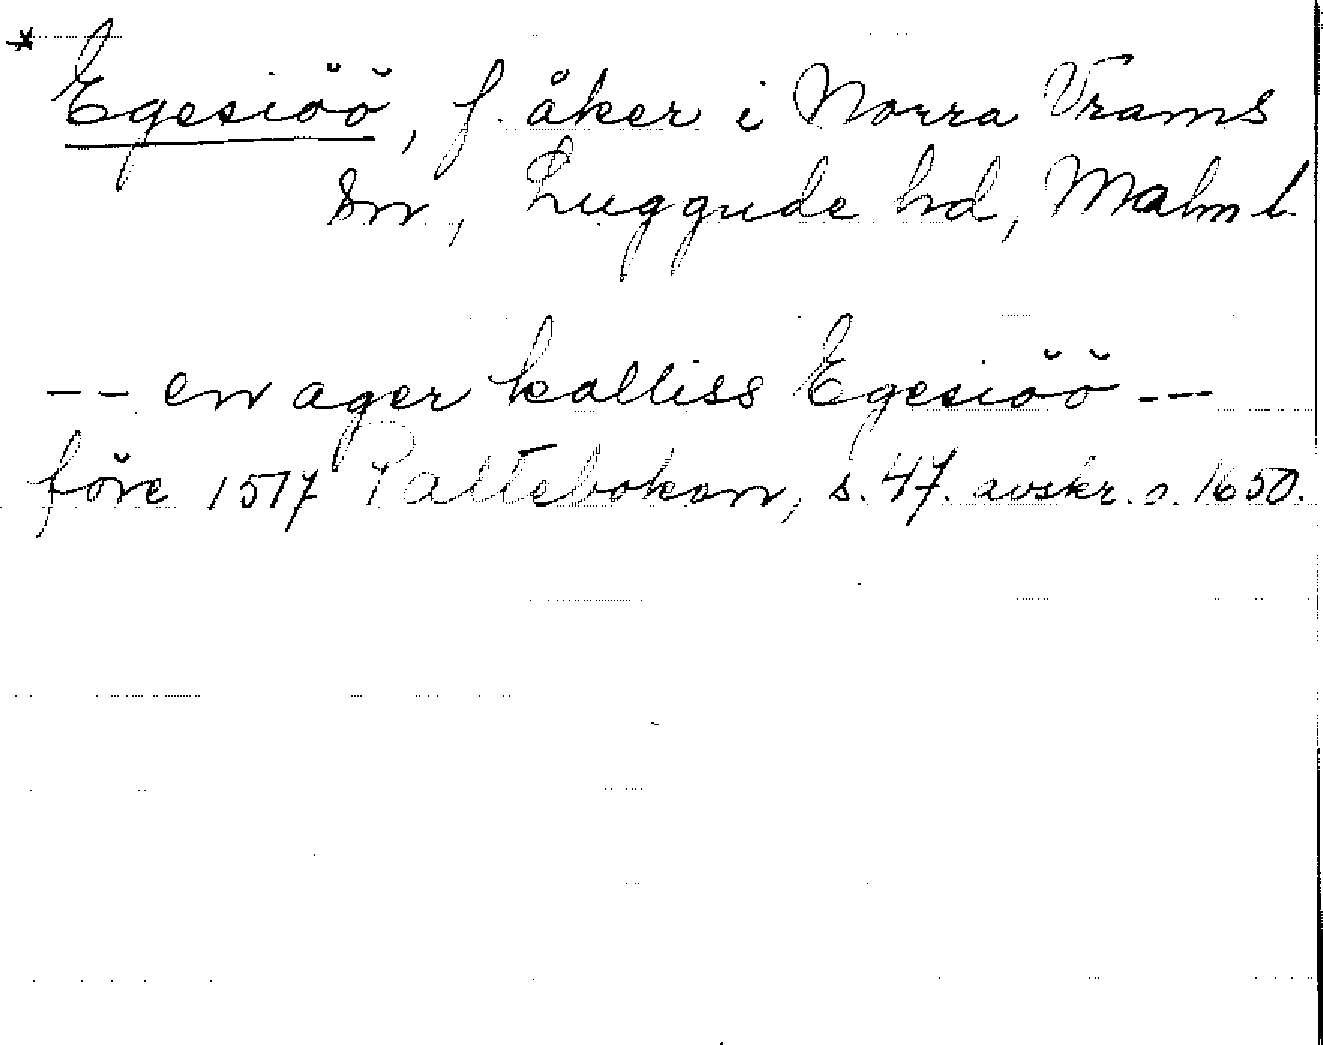 * Egesiöö, f. åker i Norra Vrams
sn, Luggude hd, Malm l.
-- en ager kalliss Egesiöö --
före 1517 Palteboken, s. 47. avskr. o. 1650.